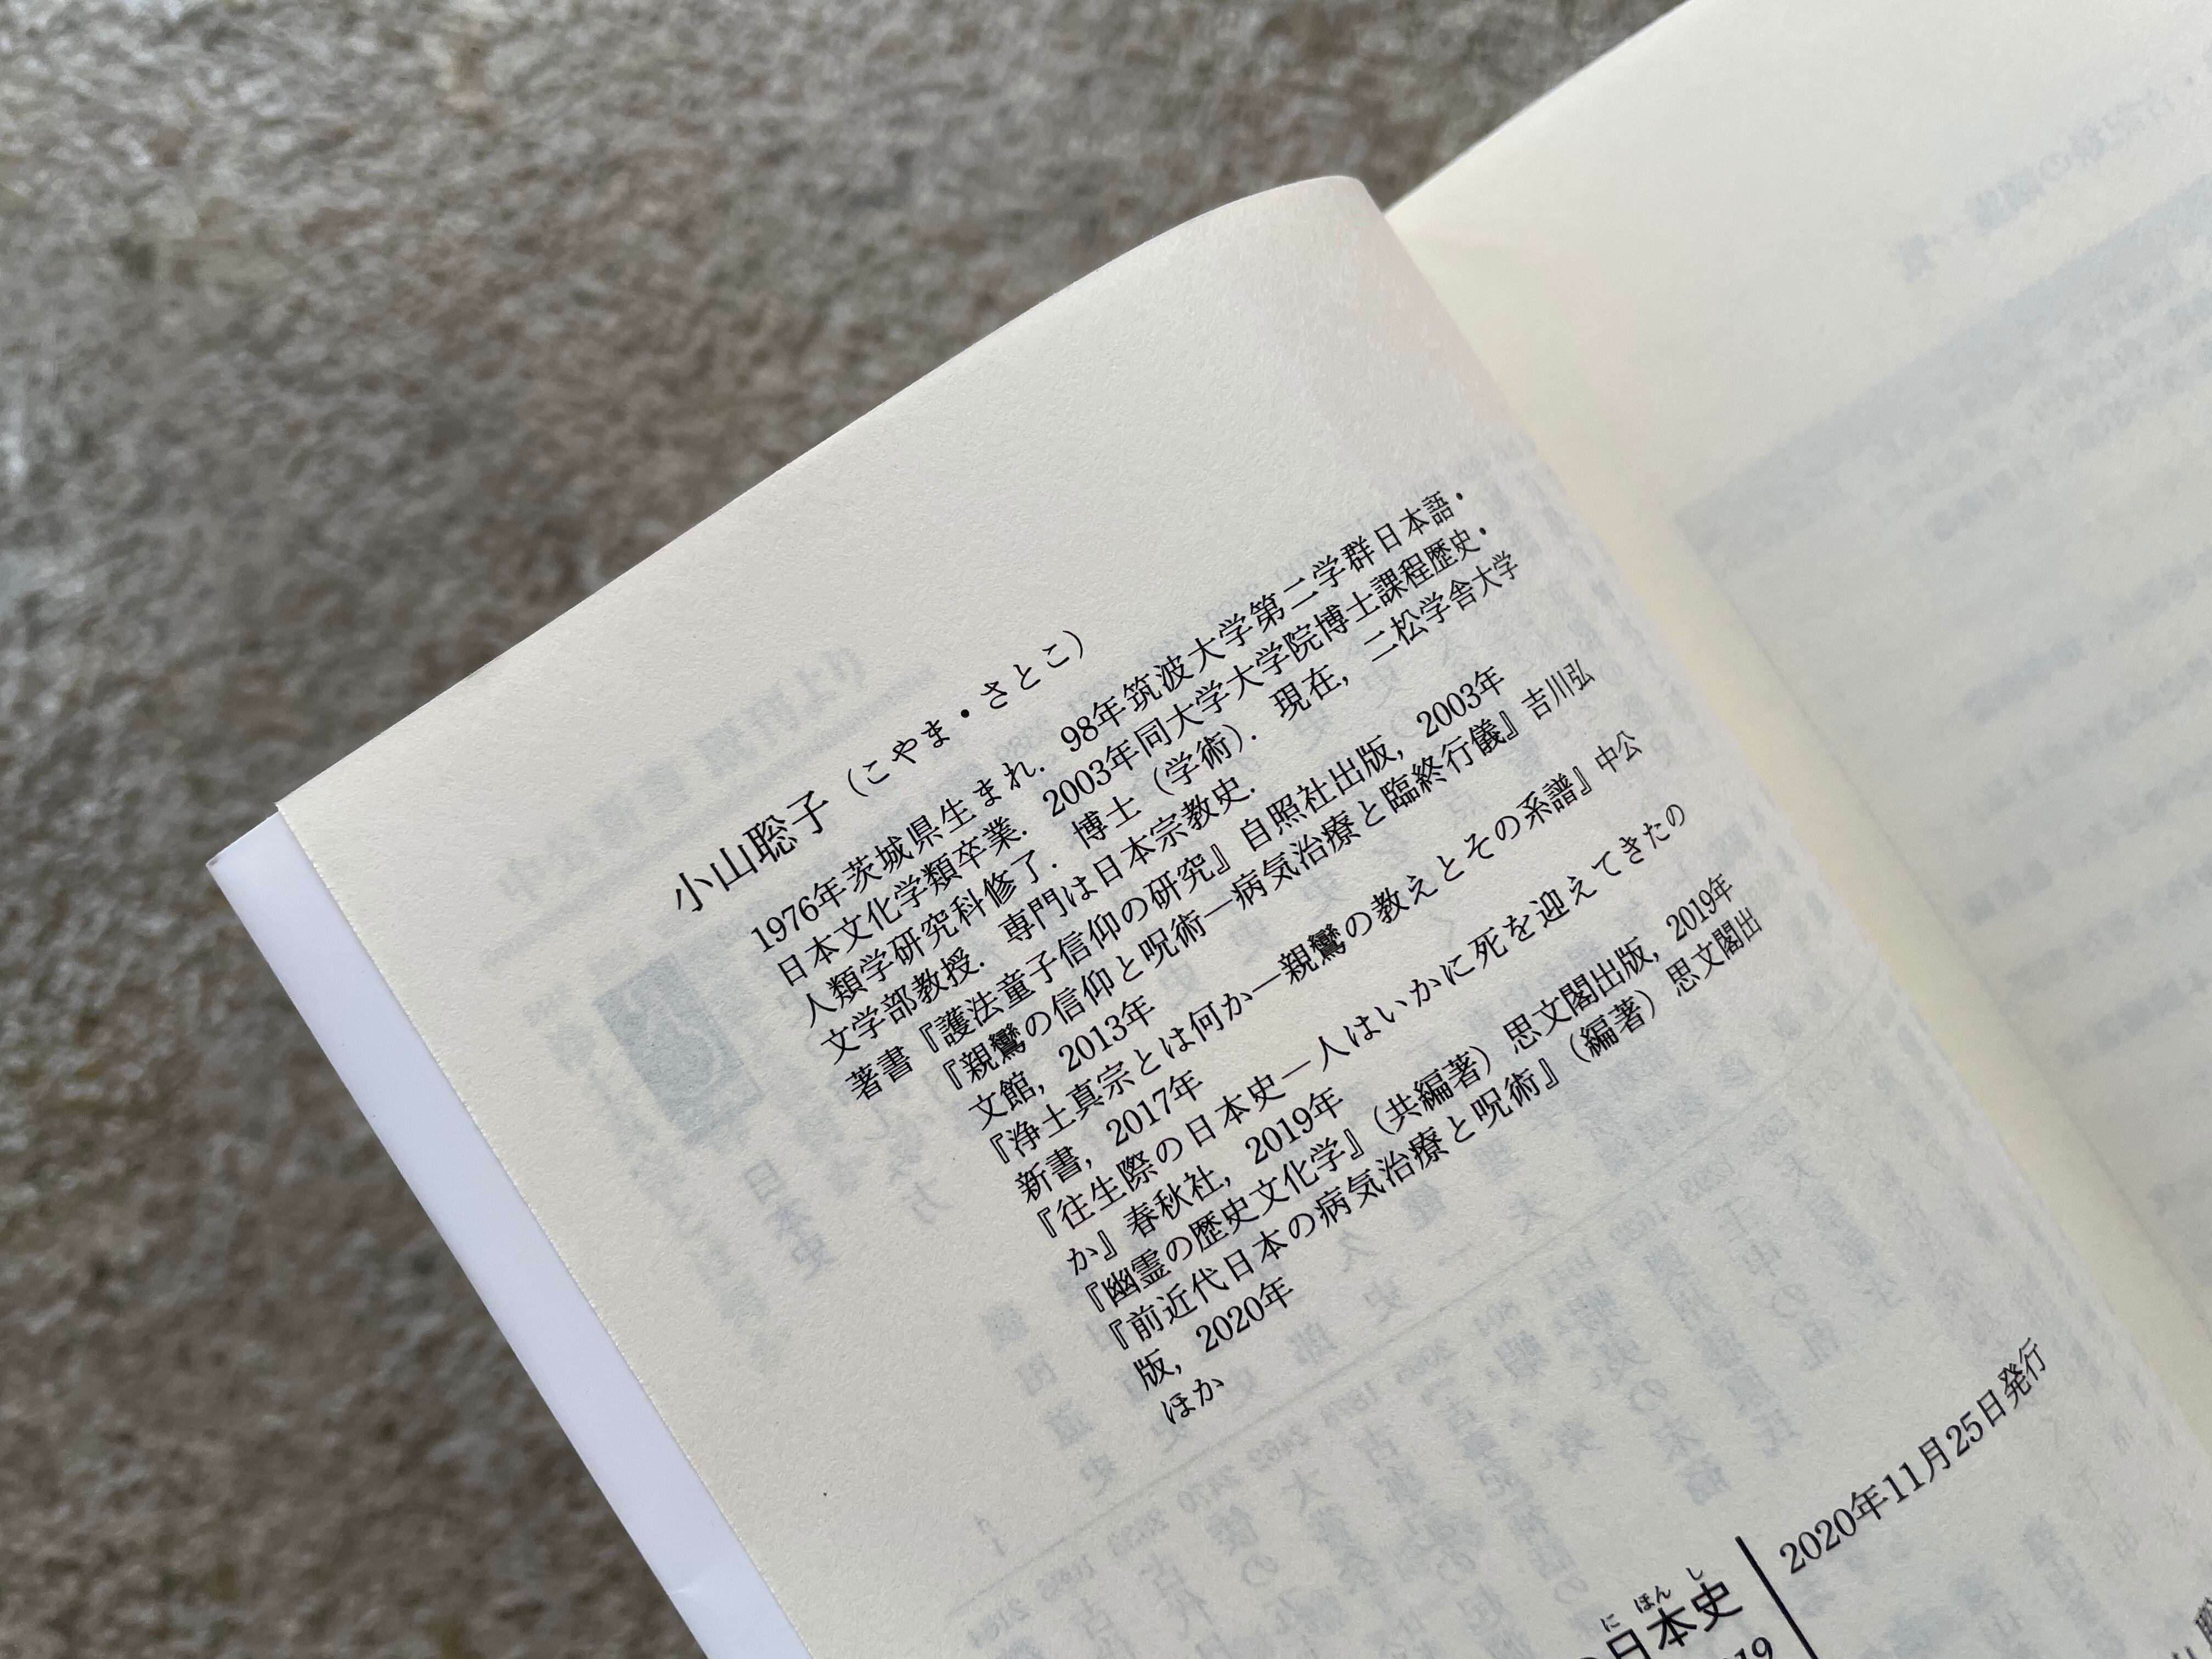 小山聡子（こやま・さとこ）
1976年茨城県生まれ．98年筑波大学第二学群日本語・
日本文化学類卒業．2003年同大学大学院博士課程歴史・
人類学研究科修了．博士（学術）．現在，二松学舎大学
文学部教授．専門は日本宗教史．
著書『護法童子信仰の研究』自照社出版，2003年
『親鸞の信仰と呪術―病気治療と臨終行儀』吉川弘
文館，2013年
『浄土真宗とは何か―親鸞の教えとその系譜』中公
新書，2017年
『往生際の日本史―人はいかに死を迎えてきたの
か』春秋社，2019年
『幽霊の歴史文化学』（共編著）思文閣出版，2019年
『前近代日本の病気治療と呪術』（編著）思文閣出
版，2020年
ほか
2020年11月25日発行
にほんし
の日本史
19